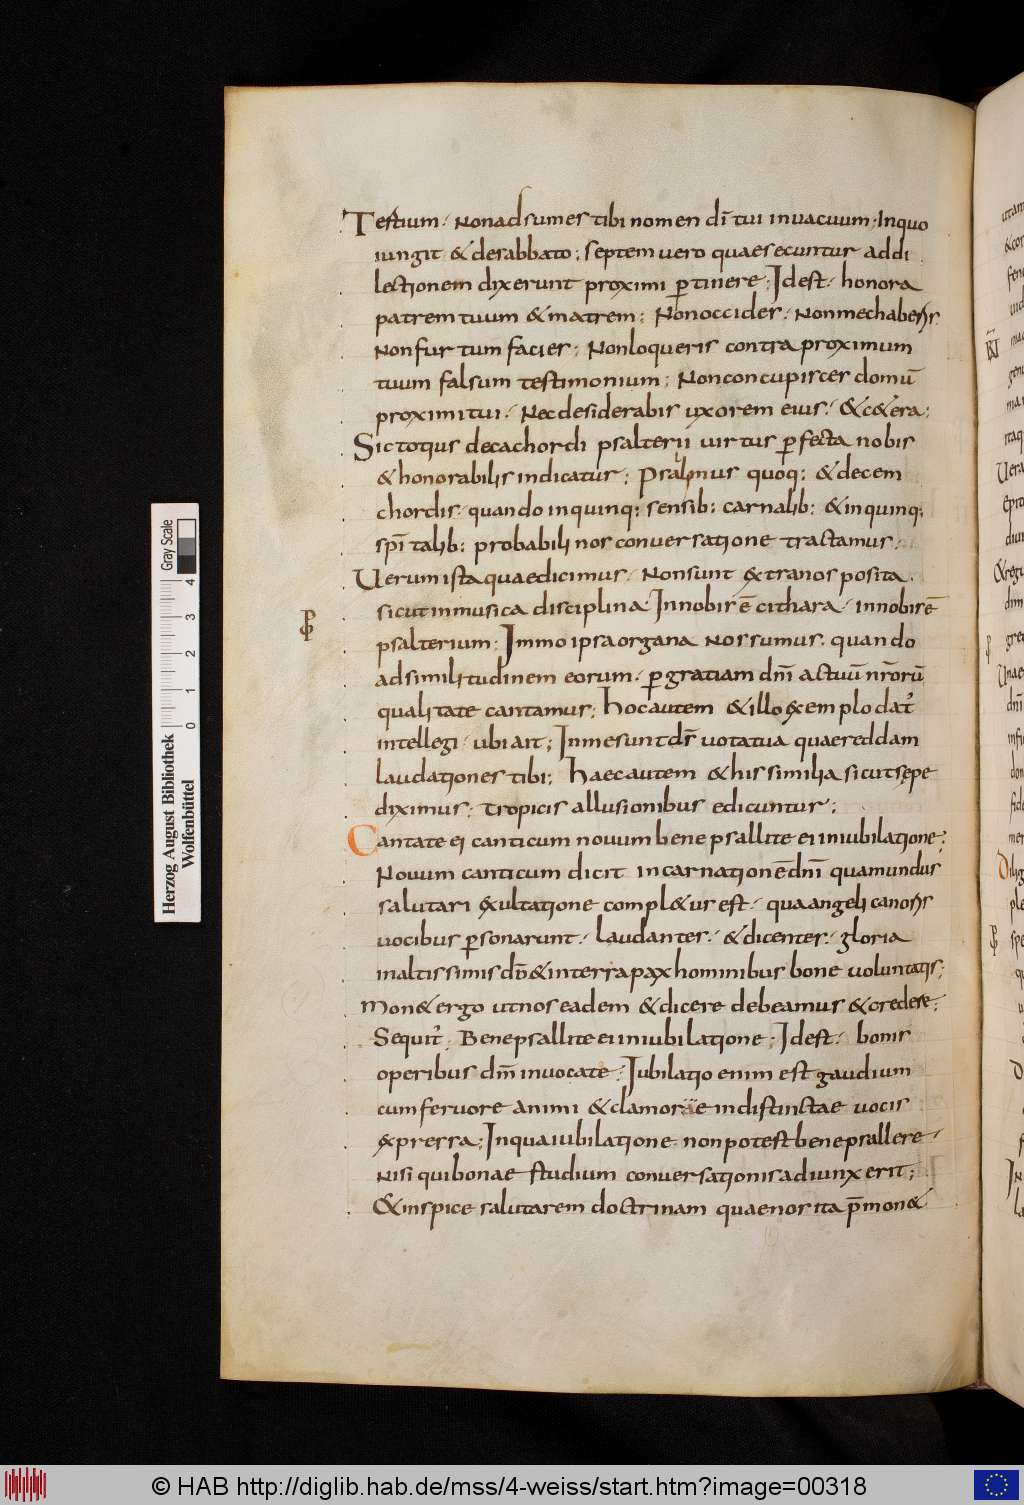 Testium· Non adsumes tibi nomen dī tui in vacuum; In quo
iungit & de sabbato; septem vero quae secuntur ad di
lectionem dixerunt proximi p̄tinere; Id est· honora
patrem tuum & matrem; Non occides· Non mechaberis·
Non furtum facies; Non loqueris contra proximum
tuum falsum testimonium; Non concupisces domū
proximi tui· Nec desiderabis uxorem eius· & c&era;
Sic totius decachordi psalterii uirtus p̄fecta nobis
& honorabilis indicatur; Psalmus quoq; & decem
chordis· quando in quinq; sensib; carnalib; & in quinq;
spītalib; probabilior conuersatione tractamus·
Uerum ista quae dicimus· Non sunt extra nos posita·
sicut in musica disciplina In nobis ē cithara· in nobis ē
psalterium· Immo ipsa organa nos sumus· quando
ad similitudinem eorum· p̄ gratiam dnī actuū nr̄orū
qualitate cantamus; hoc autem & illo exemplo dat̓
intellegi· ubi ait; In me sunt ds̄ uota tua quae reddam
laudationes tibi; haec autem & his similia sicut sępe
diximus; tropicis allusionibus edicuntur;
Cantate ei canticum nouum bene psallite ei in iubilatione;
Nouum canticum dicit incarnationē dnī qua mundus
salutari exultatione compl&us est· qua angeli canoris
uocibus p̄sonarunt· laudantes· & dicentes· gloria
in altissimis dō & in terra pax hominibus bone uoluntatis;
Mon& ergo ut nos eadem & dicere debeamus & credere;
Sequit̓· Bene psallite ei in iubilatione; Id est· bonis
operibus dnm̄ inuocate· Iubilatio enim est gaudium
cum feruore animi & clamore indistinctae uocis
expressa; In qua iubilatione non potest bene psallere·
nisi qui bonae studium conuersationis adiunxerit;
& inspice salutarem doctrinam quae nos ita p̄mon&
Herzog August Bibliothek
Wolfenbüttel
0 1 2 3 4
Gray Scale
© HAB http://diglib.hab.de/mss/4-weiss/start.htm?image=00318